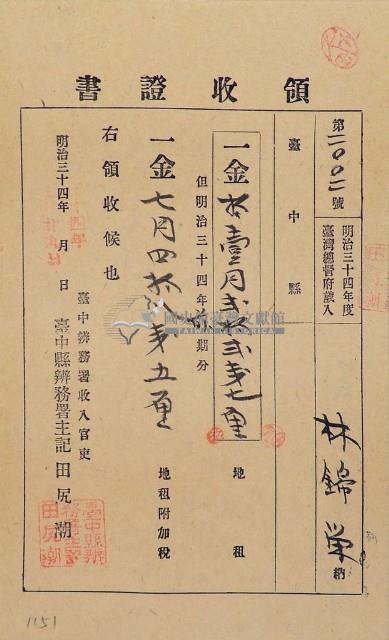 領收證書
第二〇〇二號
明治三十四年度
臺灣總督府歲入
臺中縣
林錦榮納
一金拾壹円貳拾貳戔七厘 地租
但明治三十四年 期分
一金七円四拾八戔五厘 地租附加稅
右領收候也
臺中辨務署收入官吏
明治三十四年 月 日 臺中縣辨務署主記 田尻潮
臺中縣辨
務署主記
田尻潮
國史館臺灣文獻館
TAIWAN HISTORICA
1151